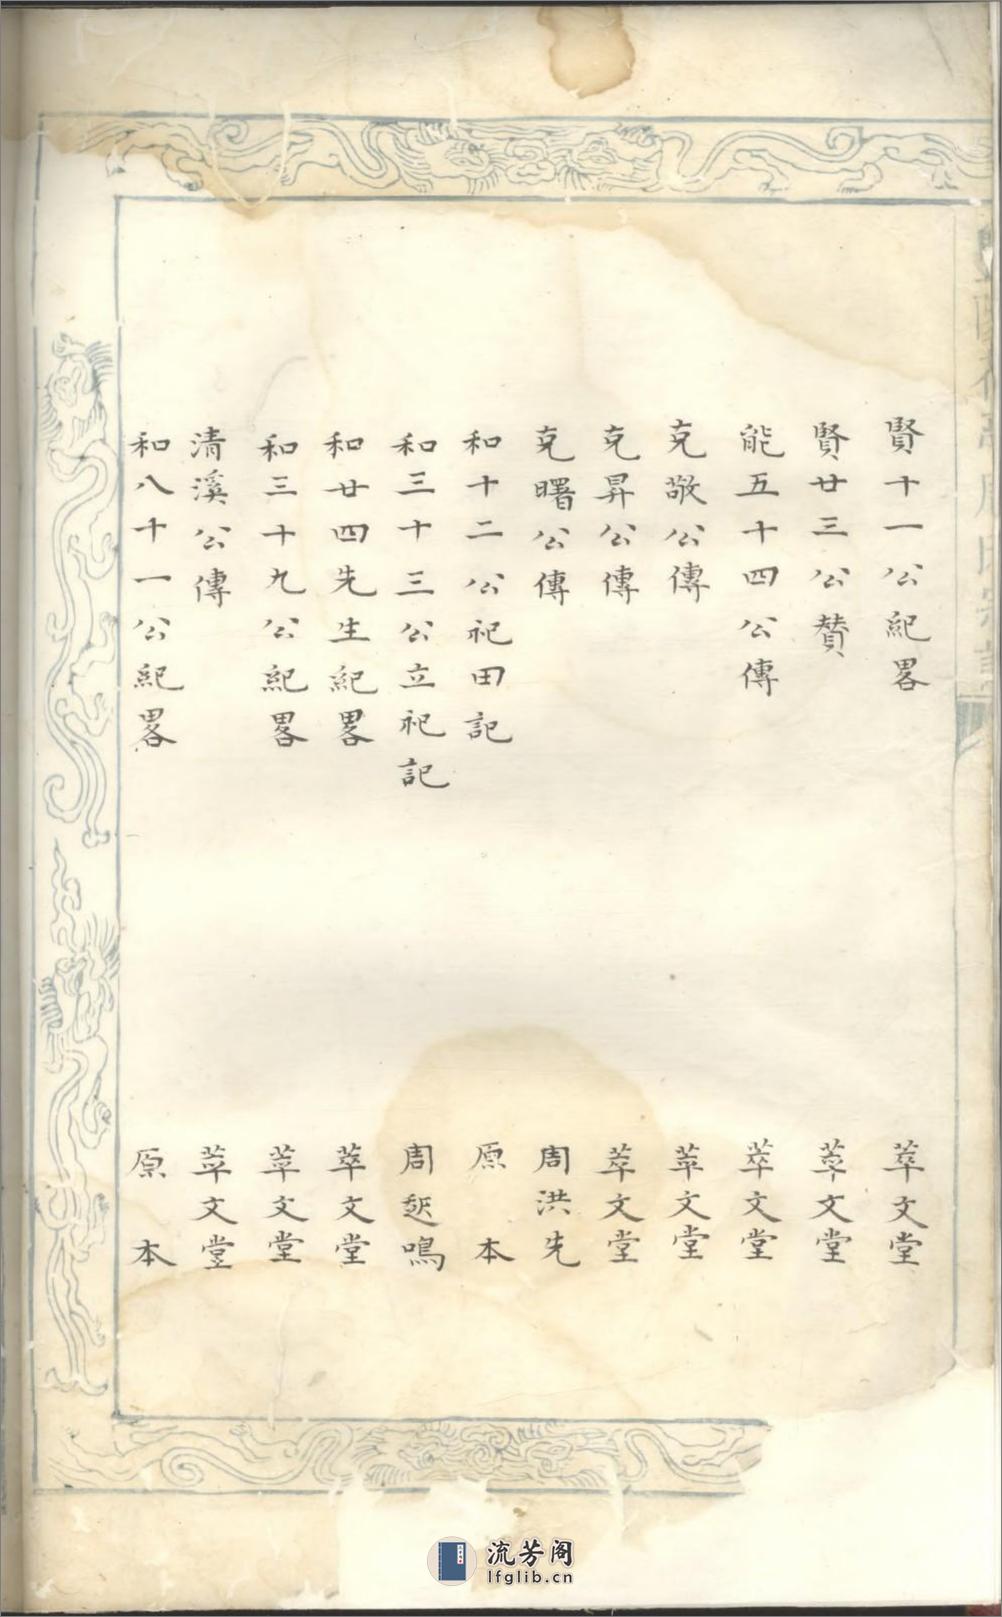 賢十一公紀畧 萃文堂
賢廿三公贊 萃文堂
能五十四公傳 萃文堂
克敬公傳 萃文堂
克昇公傳 萃文堂
克曙公傳 周洪先
和十二公祀田記 原本
和三十三公立祀記 周鳴
和廿四先生紀畧 萃文堂
和三十九公紀畧 萃文堂
清溪公傳 萃文堂
和八十一公紀畧 原本
流芳阁
lfglib.cn